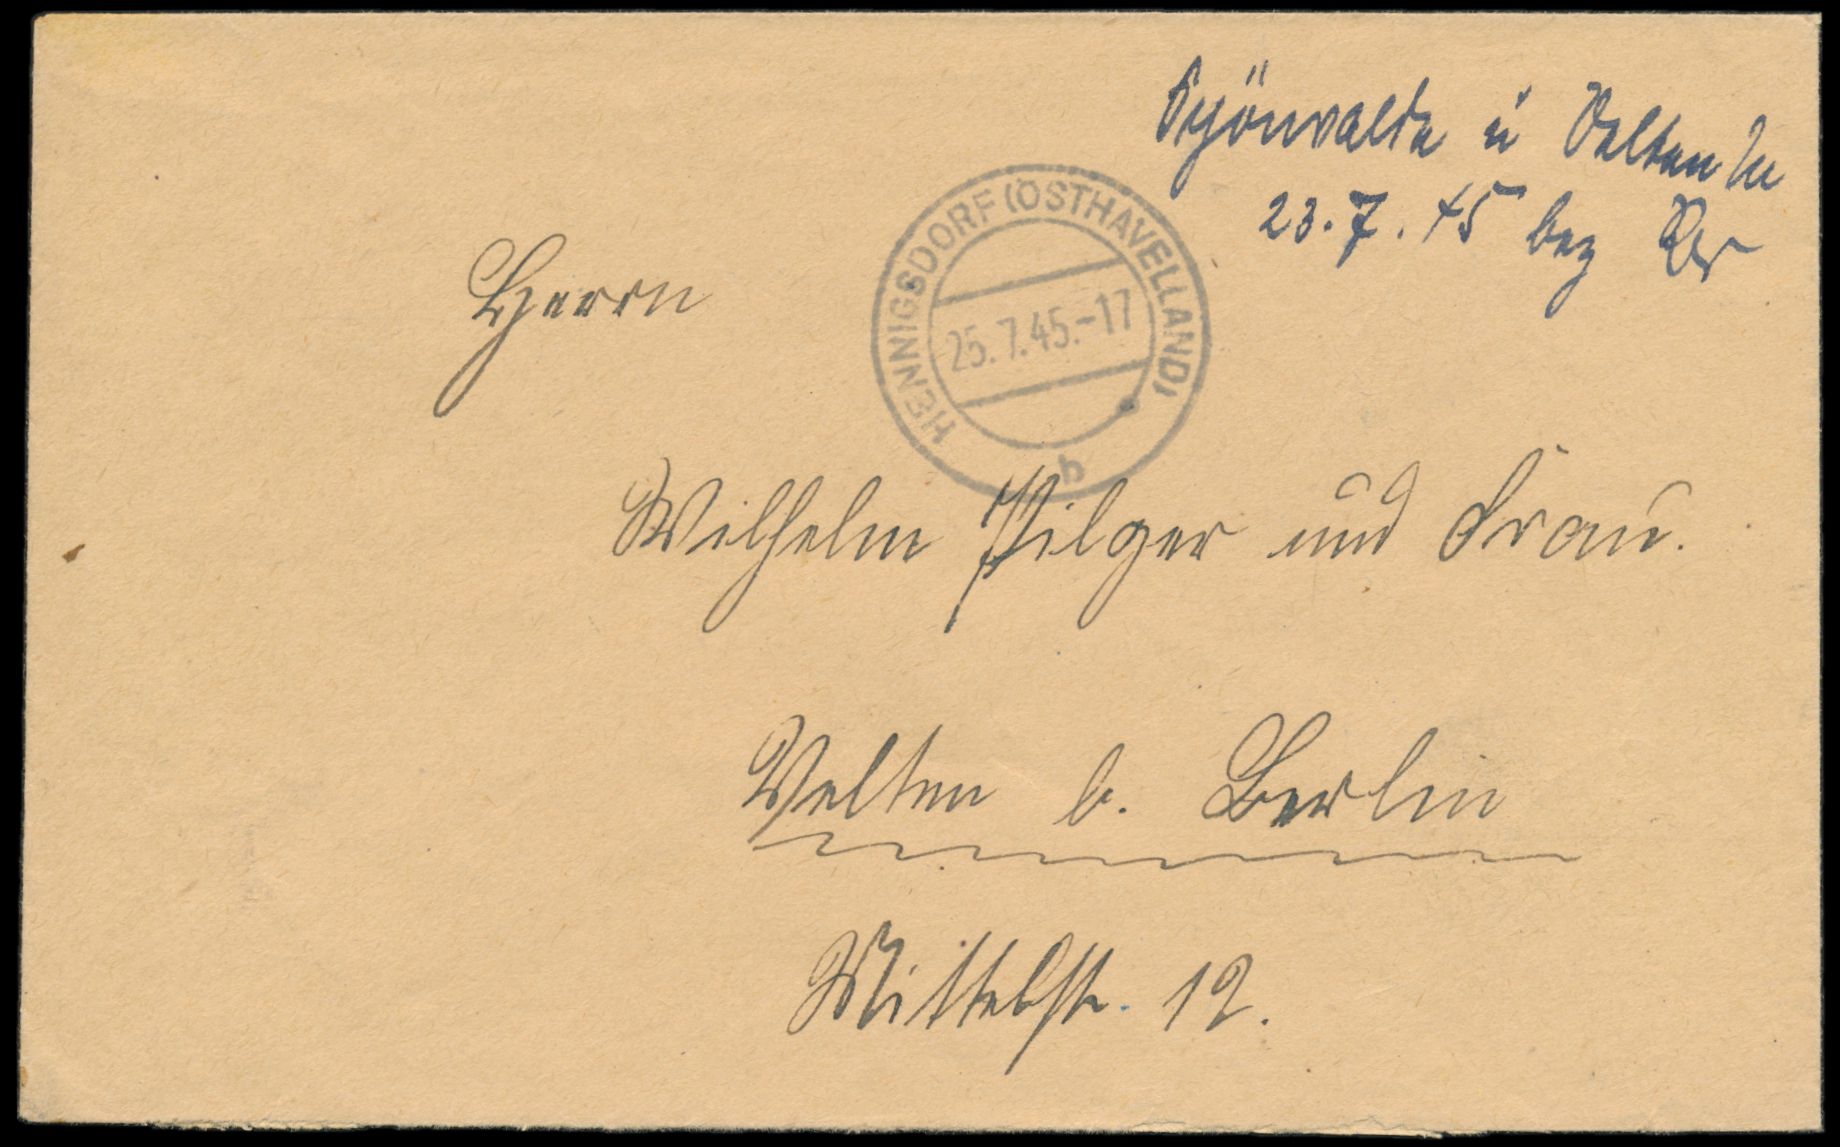 Schönwalde u Velten
23.7.45 bez
HENNIGSDORF (OSTHAVELLAND)
25.7.45.-17
b
Herrn
Wilhelm Pilger und Frau.
Velten b. Berlin
Mittelstr. 12.